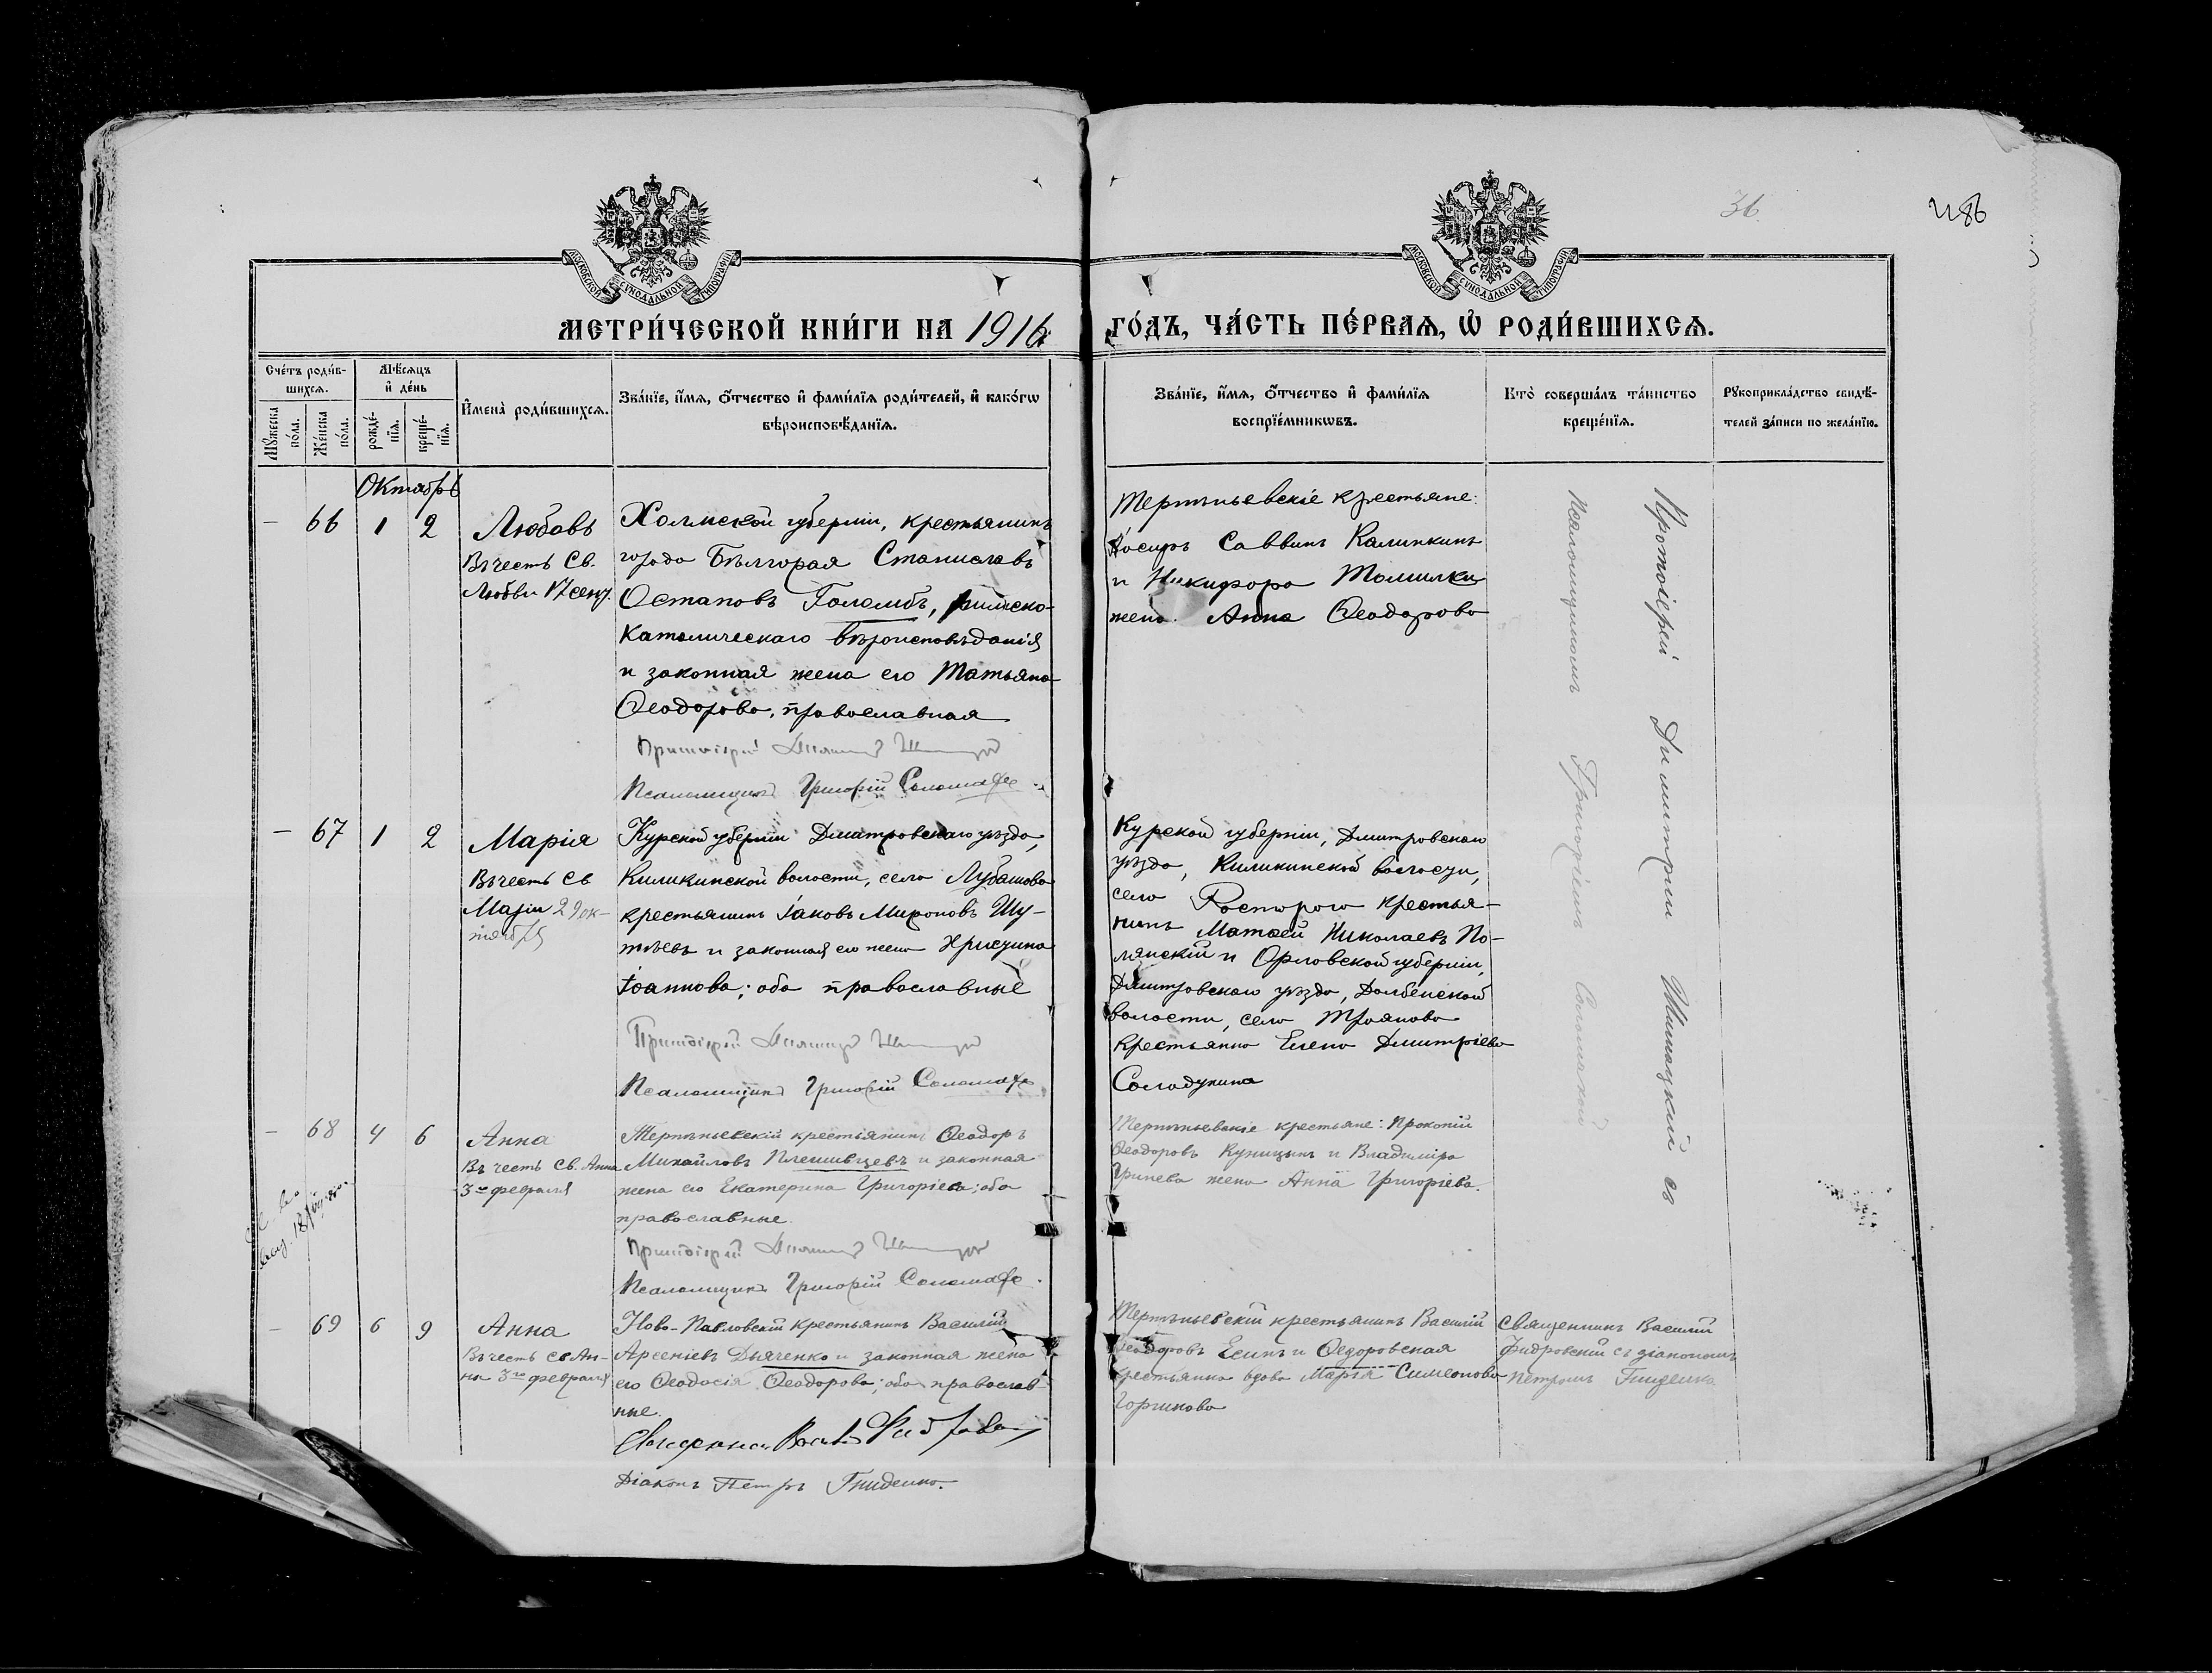 36
МОСКОВСКОЙ СѴНОДАЛЬНОЙ ТИПОГРАФІИ
МОСКОВСКОЙ СѴНОДАЛЬНОЙ ТИПОГРАФІИ
МЕТРИ́ЧЕСКОЙ КНИ́ГИ НА 1916 ГО́ДЪ, ЧА́СТЬ ПЕ́РВАѦ, Ѽ РОДИ́ВШИХСѦ.
Сче́тъ роди́в-
шихсѧ.
Мꙋ́жеска по́ла.
Же́нска по́ла.
Мѣ́сѧцъ
и҆ де́нь
рожде́-
нїѧ.
креще́-
нїѧ.
И҆мена̀ роди́вшихсѧ.
Зва́нїе, и҆́мѧ, ѻ҆́тчество и҆ фами́лїѧ роди́телей, и҆ како́гѡ
вѣроисповѣ́данїѧ.
Зва́нїе, и҆́мѧ, ѻ҆́тчество и҆ фами́лїѧ
воспрїе́мникѡвъ.
Кто̀ соверша́лъ та́инство
креще́нїѧ.
Рꙋкоприкла́дство свидѣ́-
телей за́писи по жела́нїю.
Октябрь
— 66 1 2
Любовь
Въ честь Св.
Любви 17 сент.
Холмской губерніи, крестьянинъ
города Бѣлгорая Станиславъ
Остаповъ Голембъ, римско-
католическаго вѣроисповѣданія
и законная жена его Татьяна
Ѳеодорова, православная
Протоіерей Димитрій
Псаломщикъ Григорій
Терпѣньевскіе крестьяне:
Іосифъ Саввинъ Калинкинъ
и Никифора Томилки
жена Анна Ѳеодорова
Протоіерей Димитрій съ
Псаломщикомъ Григоріемъ
— 67 1 2
Марія
Въ честь Св
Маріи 29 ок-
тября
Курской губерніи Дмитровскаго уѣзда,
Киликинской волости, села Лубашова
крестьянинъ Іаковъ Мироновъ Шу-
тѣевъ и законная его жена Христина
Іоаннова; оба православные
Протоіерей Димитрій
Псаломщикъ Григорій
Курской губерніи, Дмитровскаго
уѣзда, Киликинской волости,
села Росторого крестья-
нинъ Матѳей Николаевъ По-
лянскій и Орловской губерніи,
Дмитровскаго уѣзда, Долбенской
волости, села Трояново
крестьянка Елена Дмитріева
Солодухина
— 68 4 6
Анна
Въ честь Св. Анна
3го февраля
Терпѣньевскій крестьянинъ Ѳеодоръ
Михайловъ Плешивцевъ и законная
жена его Екатерина Григоріева; оба
православные.
Протоіерей Димитрій
Псаломщикъ Григорій
Терпѣньевскіе крестьяне: Прокопій
Ѳеодоровъ Куницынъ и Владиміра
Гринева жена Анна Григоріева.
— 69 6 9
Анна
Въ честь Св Ан-
ны 3го февраля
Ново-Павловскій крестьянинъ Василій
Арсеніевъ Дьяченко и законная жена
его Ѳеодосія Ѳеодорова; оба православ-
ные.
Священникъ Василій
Діаконъ Петръ Гниденко.
Терпѣньевскій крестьянинъ Василій
Ѳеодоровъ Есинъ и Ѳедоровская
крестьянка вдова Марія Симеонова
Горликова
Священникъ Василій
Фидровскій съ діакономъ
Петромъ Гниденко